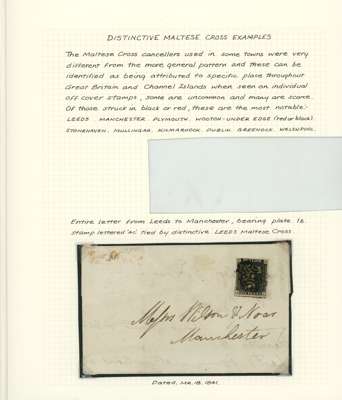 DISTINCTIVE MALTESE CROSS EXAMPLES
The Maltese Cross cancellers used in some towns were very
different from the more general pattern and these can be
identified as being attributed to specific place throughout
Great Britain and Channel Islands when seen on individual
off cover stamps, some are uncommon and many are scarce.
Of those struck in black or red, these are the most notable:-
LEEDS. MANCHESTER. PLYMOUTH. WOOTON-UNDER EDGE (red or black)
STONEHAVEN. MULLINGAR. KILMARNOCK. DUBLIN. GREENOCK. WELSHPOOL.
Entire letter from Leeds to Manchester, bearing plate 1b
stamp lettered tied by distinctive LEEDS Maltese Cross
Messrs Wilson &
Manchester
Dated, 18, 1841.